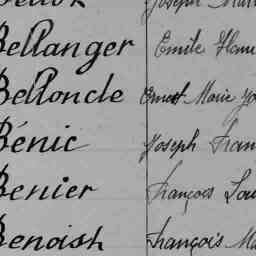 Bellanger Emile
Belloncle Ernest Marie
Bénic Joseph
Benier François
Benoish François